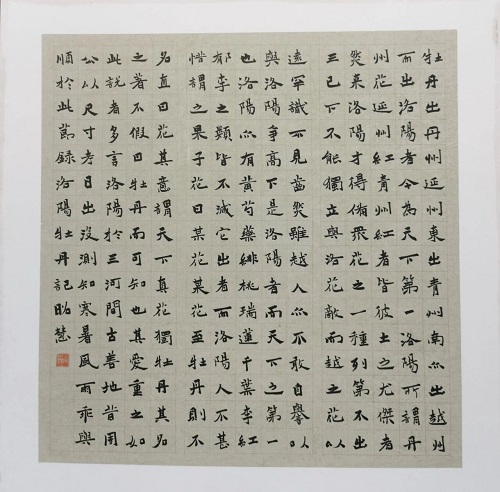 牡丹出丹州延州東出青州南亦出越州
而出洛陽者今為天下第一洛陽所謂丹
州花延州紅青州紅者皆彼土之尤傑者
然来洛陽才得備衆花之一種列第不出
三已下不能獨立與洛花敵而越之花以
遠罕識不見齒然雖越人亦不敢自譽以
與洛陽爭高下是洛陽者而天下之第一
也洛陽亦有黄芍藥緋桃瑞蓮千葉李紅
郁李之類皆不減它出者而洛陽人不甚
惜謂之果子花曰某花某花至牡丹則不
名直曰花其意謂天下真花獨牡丹其名
之著不假曰牡丹而可知也其愛重之如
此說者多言洛陽於三河間古善地昔周
公以尺寸考日出没測知寒暑風雨乖與
順於此節録洛陽牡丹記昭慧